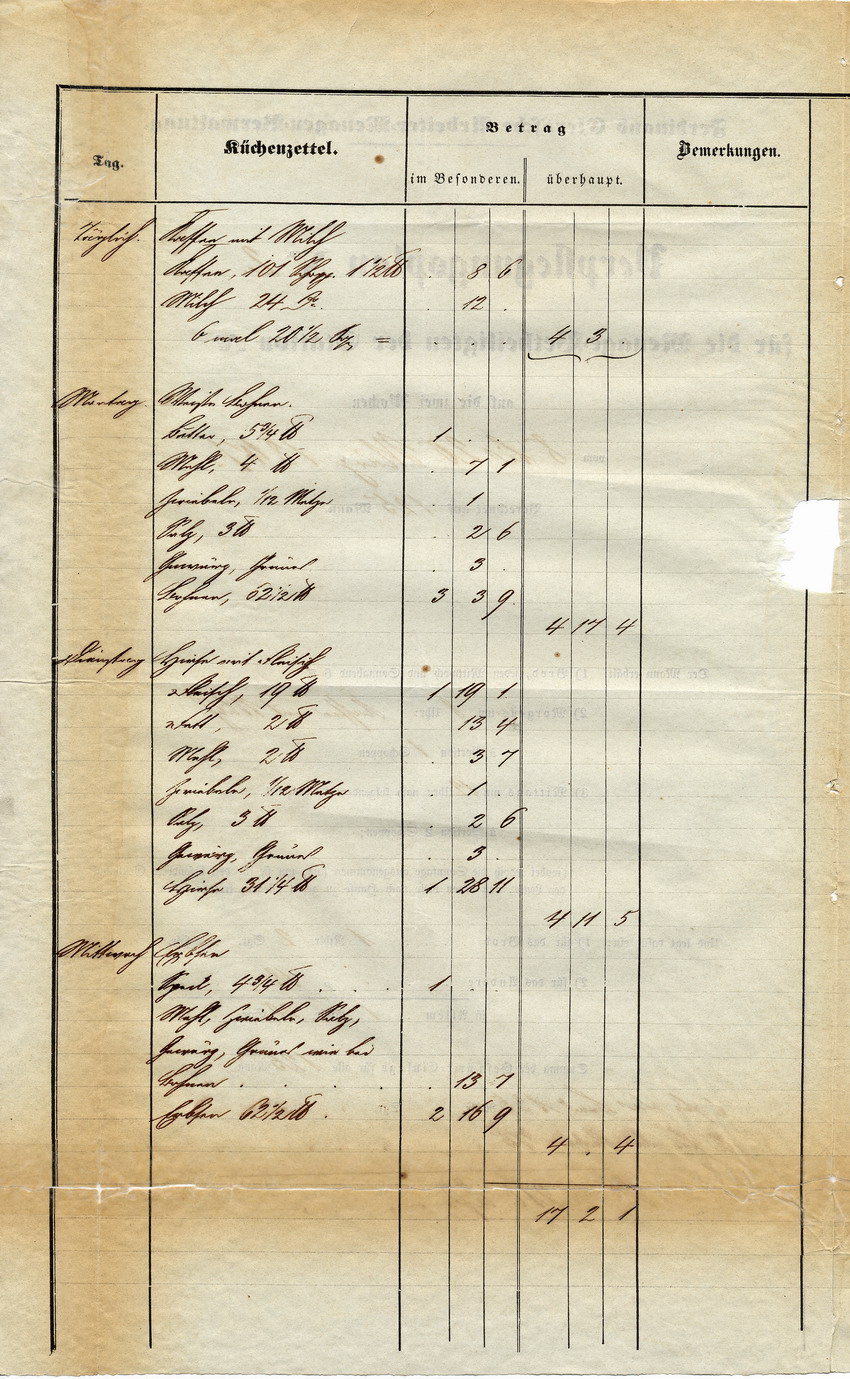 Tag.
Küchenzettel.
Betrag
im Besonderen.
überhaupt.
Bemerkungen.
Täglich. Kaffee mit Milch
Kaffee, 101 1 1/2 ℔ . 8 6
Milch 24 . 12 .
6 mal 20 1/2 = . . . 4 3 .
Montag. Weiße Bohnen.
Butter, 5 3/4 ℔ 1 . .
Mehl, 4 ℔ . 7 1
Zwiebeln, 1/12 Metze . 1 .
Salz, 3 ℔ . 2 6
Gewürz, Grünes . 3 .
Bohnen, 62 1/2 ℔ 3 3 9
4 17 4
Dienstag Hirse mit Fleisch
Fleisch, 19 ℔ 1 19 1
Fett, 2 ℔ 13 4
Mehl, 2 ℔ . 3 7
Zwiebeln, 1/12 Metze . 1 .
Salz, 3 ℔ . 2 6
Gewürz, Grünes . 3 .
Hirse 31 1/4 ℔ 1 28 11
4 11 5
Mittwoch Erbsen
Speck, 4 3/4 ℔ . . . 1 . .
Mehl, Zwiebeln, Salz,
Gewürz, Grünes wie bei
Bohnen . . . . . 13 7
Erbsen 62 1/2 ℔ . 2 16 9
4 . 4
17 2 1